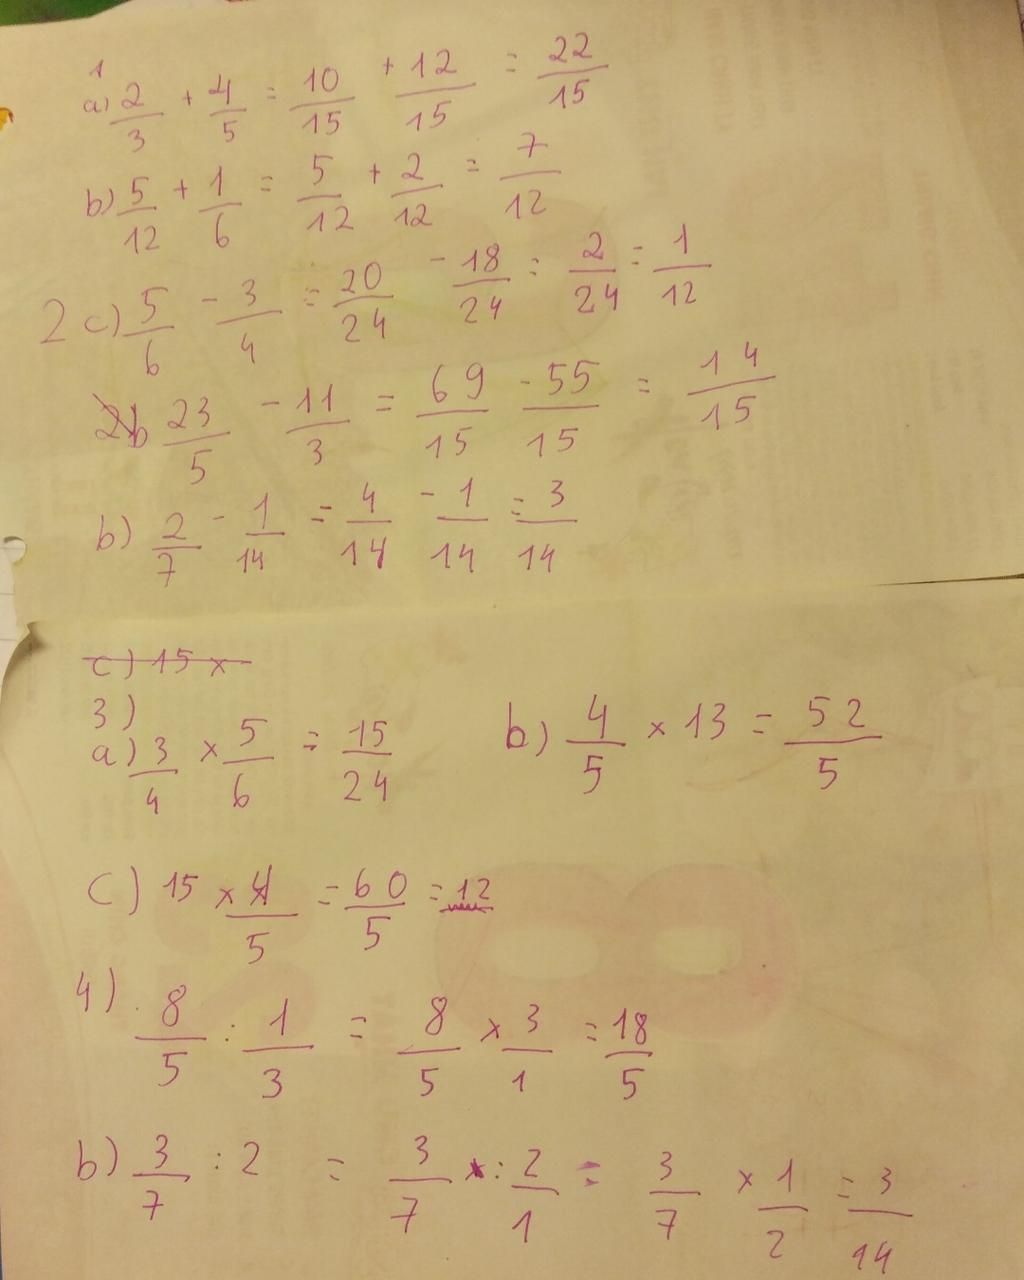 1
a) 2/3 + 4/5 = 10/15 + 12/15 = 22/15
b) 5/12 + 1/6 = 5/12 + 2/12 = 7/12
2 c) 5/6 - 3/4 = 20/24 - 18/24 = 2/24 = 1/12
b 23/5 - 11/3 = 69/15 - 55/15 = 14/15
b) 2/7 - 1/14 = 4/14 - 1/14 = 3/14
c) 15 x
3)
a) 3/4 x 5/6 = 15/24 b) 4/5 x 13 = 52/5
c) 15 x 4/5 = 60/5 = 12
4) 8/5 : 1/3 = 8/5 x 3/1 = 18/5
b) 3/7 : 2 = 3/7 : 2/1 = 3/7 x 1/2 = 3/14